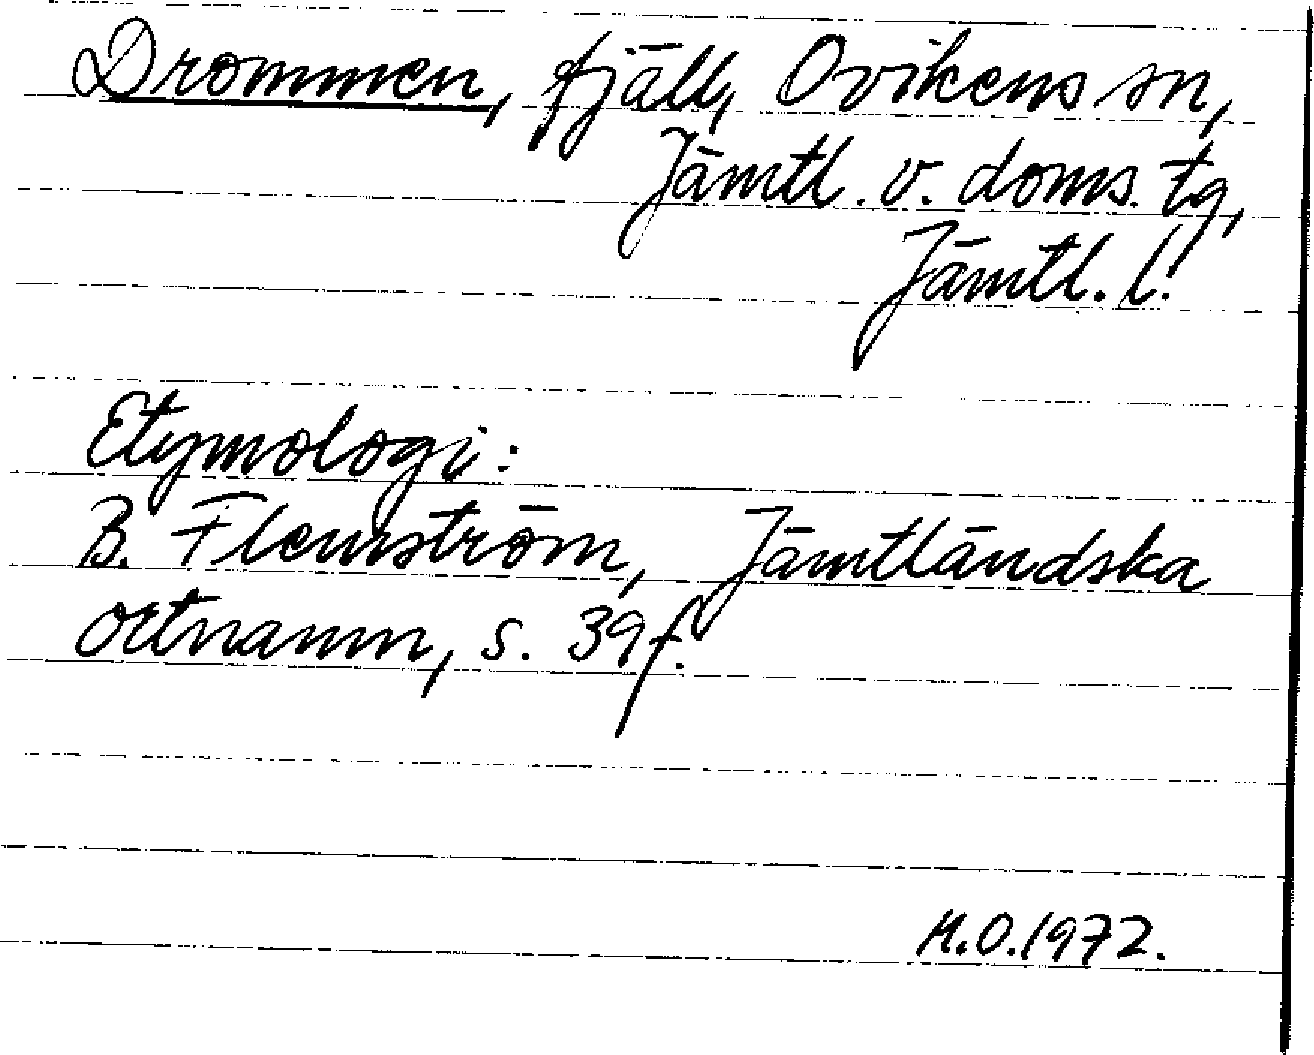 Drommen, fjäll, Ovikens sn,
Jämtl. v. doms. tg,
Jämtl. l.
Etymologi:
B. Flemström, Jämtländska
ortnamn, s. 39 f.
M.O. 1972.